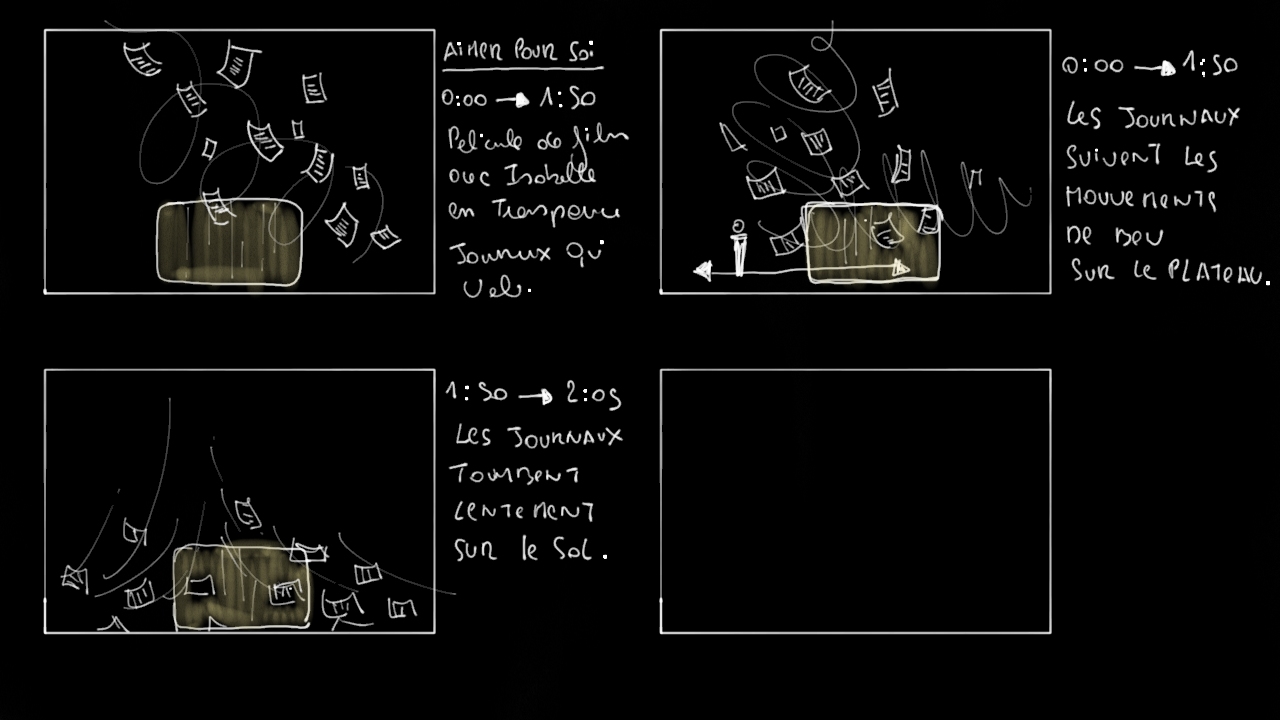 AIMER POUR SOI
0:00 → 1:50
Pelicule de film
avec Isabelle
en Transparence
Journaux Qui
Vole.
0:00 → 1:50
LES JOURNAUX
SUIVENT LES
MOUVEMENTS
DE BEU
SUR LE PLATEAU.
1:50 → 2:05
LES JOURNAUX
TOMBENT
LENTEMENT
SUR le SOL.